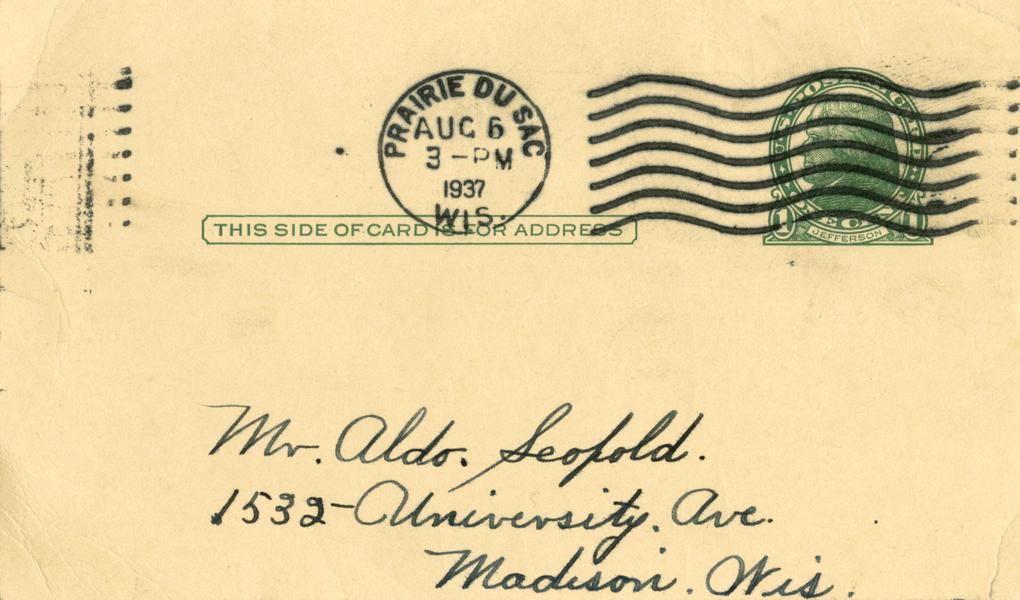 PRAIRIE DU SAC
AUG 6
3-PM
1937
WIS.
U.S. POSTAL CARD
1 CENT 1
JEFFERSON
THIS SIDE OF CARD IS FOR ADDRESS
Mr. Aldo. Leopold.
1532-University. Ave.
Madison. Wis.